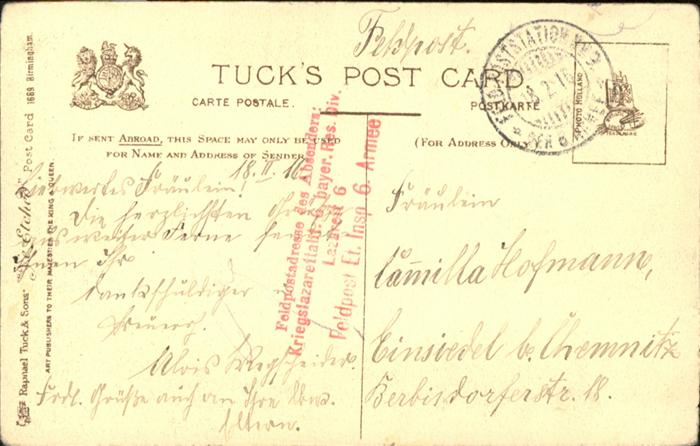 Feldpost.
TUCK'S POST CARD
CARTE POSTALE.
POSTKARTE
PHOTO HOLLAND
18.2.16
IF SENT ABROAD, THIS SPACE MAY ONLY BE USED
FOR NAME AND ADDRESS OF SENDER.
(FOR ADDRESS ONLY
18. II. 16.
Fräulein!
Die herzlichsten Grüße
aus weiter Ferne
Ihnen Ihr
dankschuldiger
Alois
Frdl. Grüße auch an Ihre
Eltern.
Feldpostadresse des Absenders:
Kriegslazarettabt. bayer. Res. Div.
Lazarett 6
Feldpost Et. Insp. 6. Armee
Fräulein
Camilla Hofmann,
Einsiedel b. Chemnitz
Berbisdorferstr. 18.
Raphael Tuck & Sons' Post Card 1669 Birmingham.
ART PUBLISHERS TO THEIR MAJESTIES THE KING & QUEEN.